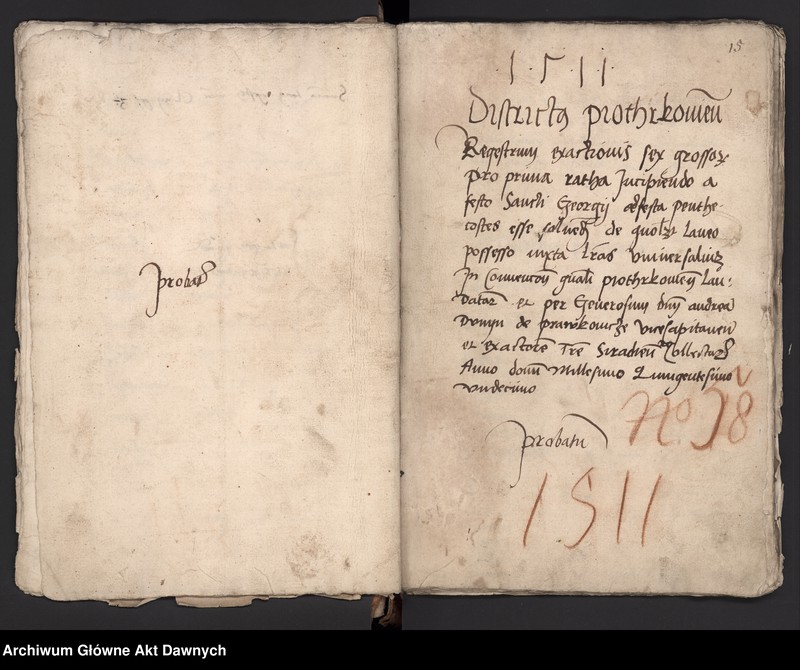 probat
15
1511
Districtus piothrkovien
Regestrum exactionis sex grossor
pro prima ratha Incipiendo a
festo Sancti Georgii festa penthe
costes esse solven de quolz laneo
possesso iuxta lras universaliu
In Convention gnali piothrkovien lau:
datar et per Generosum dnm andrea
Dunyn de vicecapitaneu
et exactore Tre Siradien Collectar
Anno domi Millesimo Quingentesimo
undecimo
probatu
No. 18
1511
Archiwum Główne Akt Dawnych